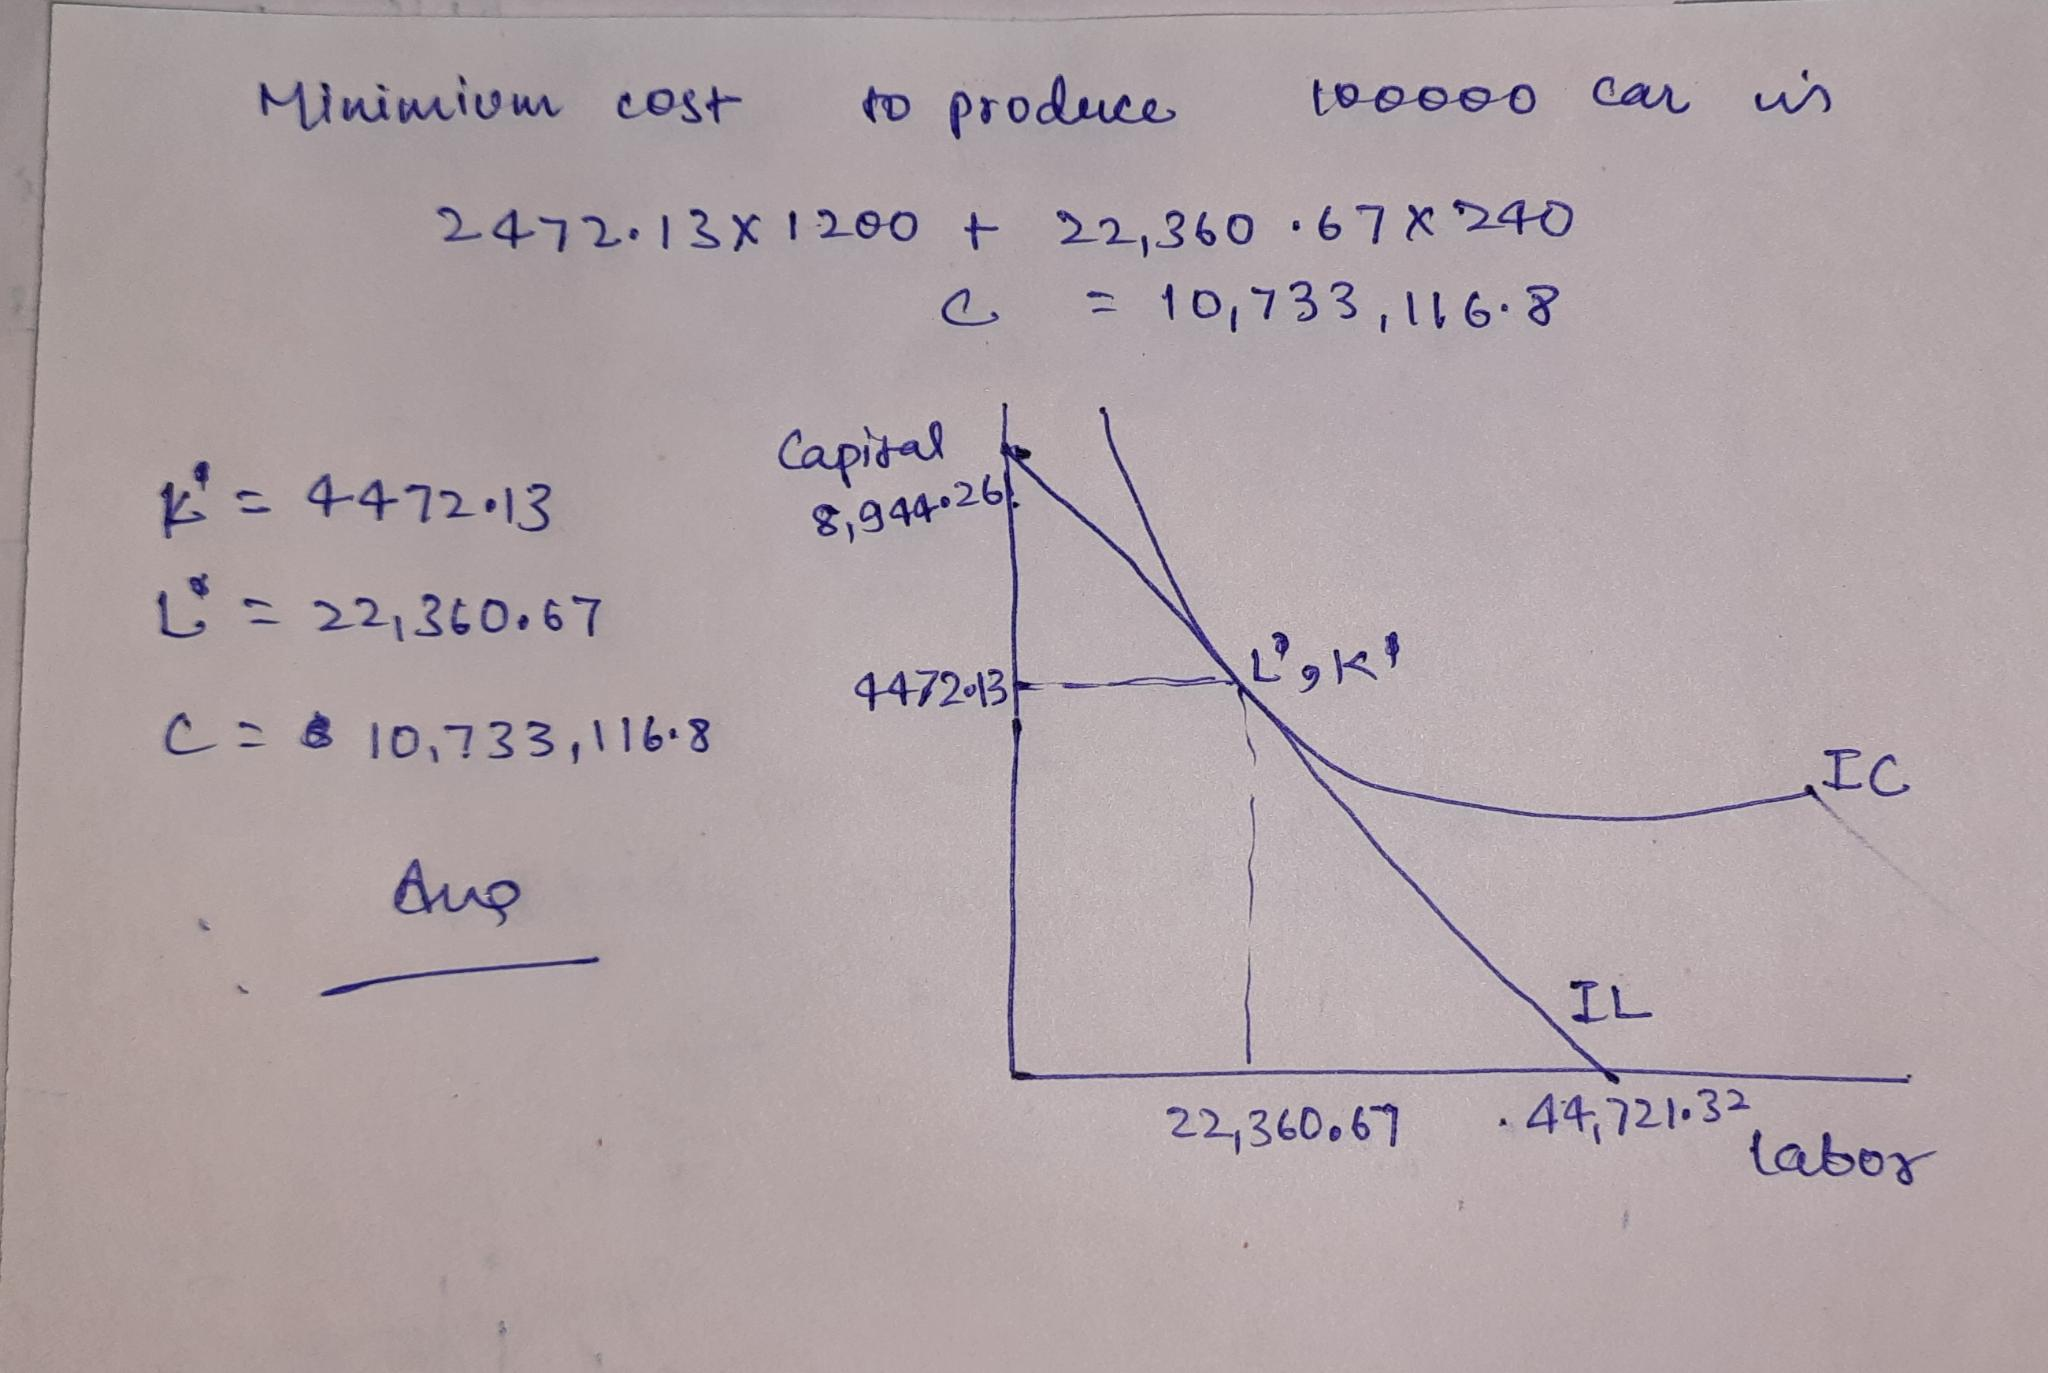 Minimium cost to produce 100000 car is
2472.13 x 1200 + 22,360.67 x 240
C = 10,733,116.8
Capital
8,944.26
K* = 4472.13
L* = 22,360.67
C = 10,733,116.8
Ans
4472.13
L*, K*
IC
IL
22,360.67
44,721.32
labor